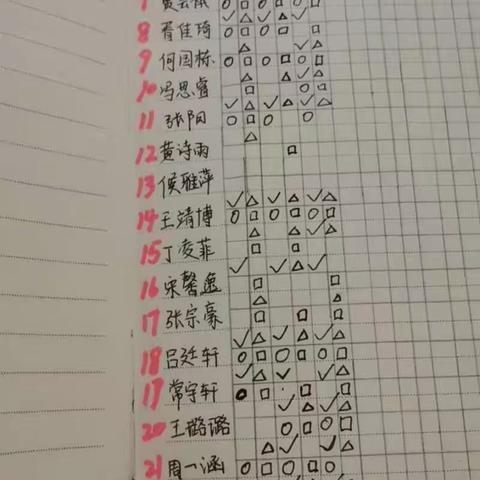 8 胥佳琦
9 何国栋
10 冯思睿
11 张阳
12 黄诗雨
13 侯雅萍
14 王靖博
15 丁凌菲
16 宋馨逸
17 张宗豪
18 吕廷轩
17 常宇轩
20 王璐璐
21 周一涵